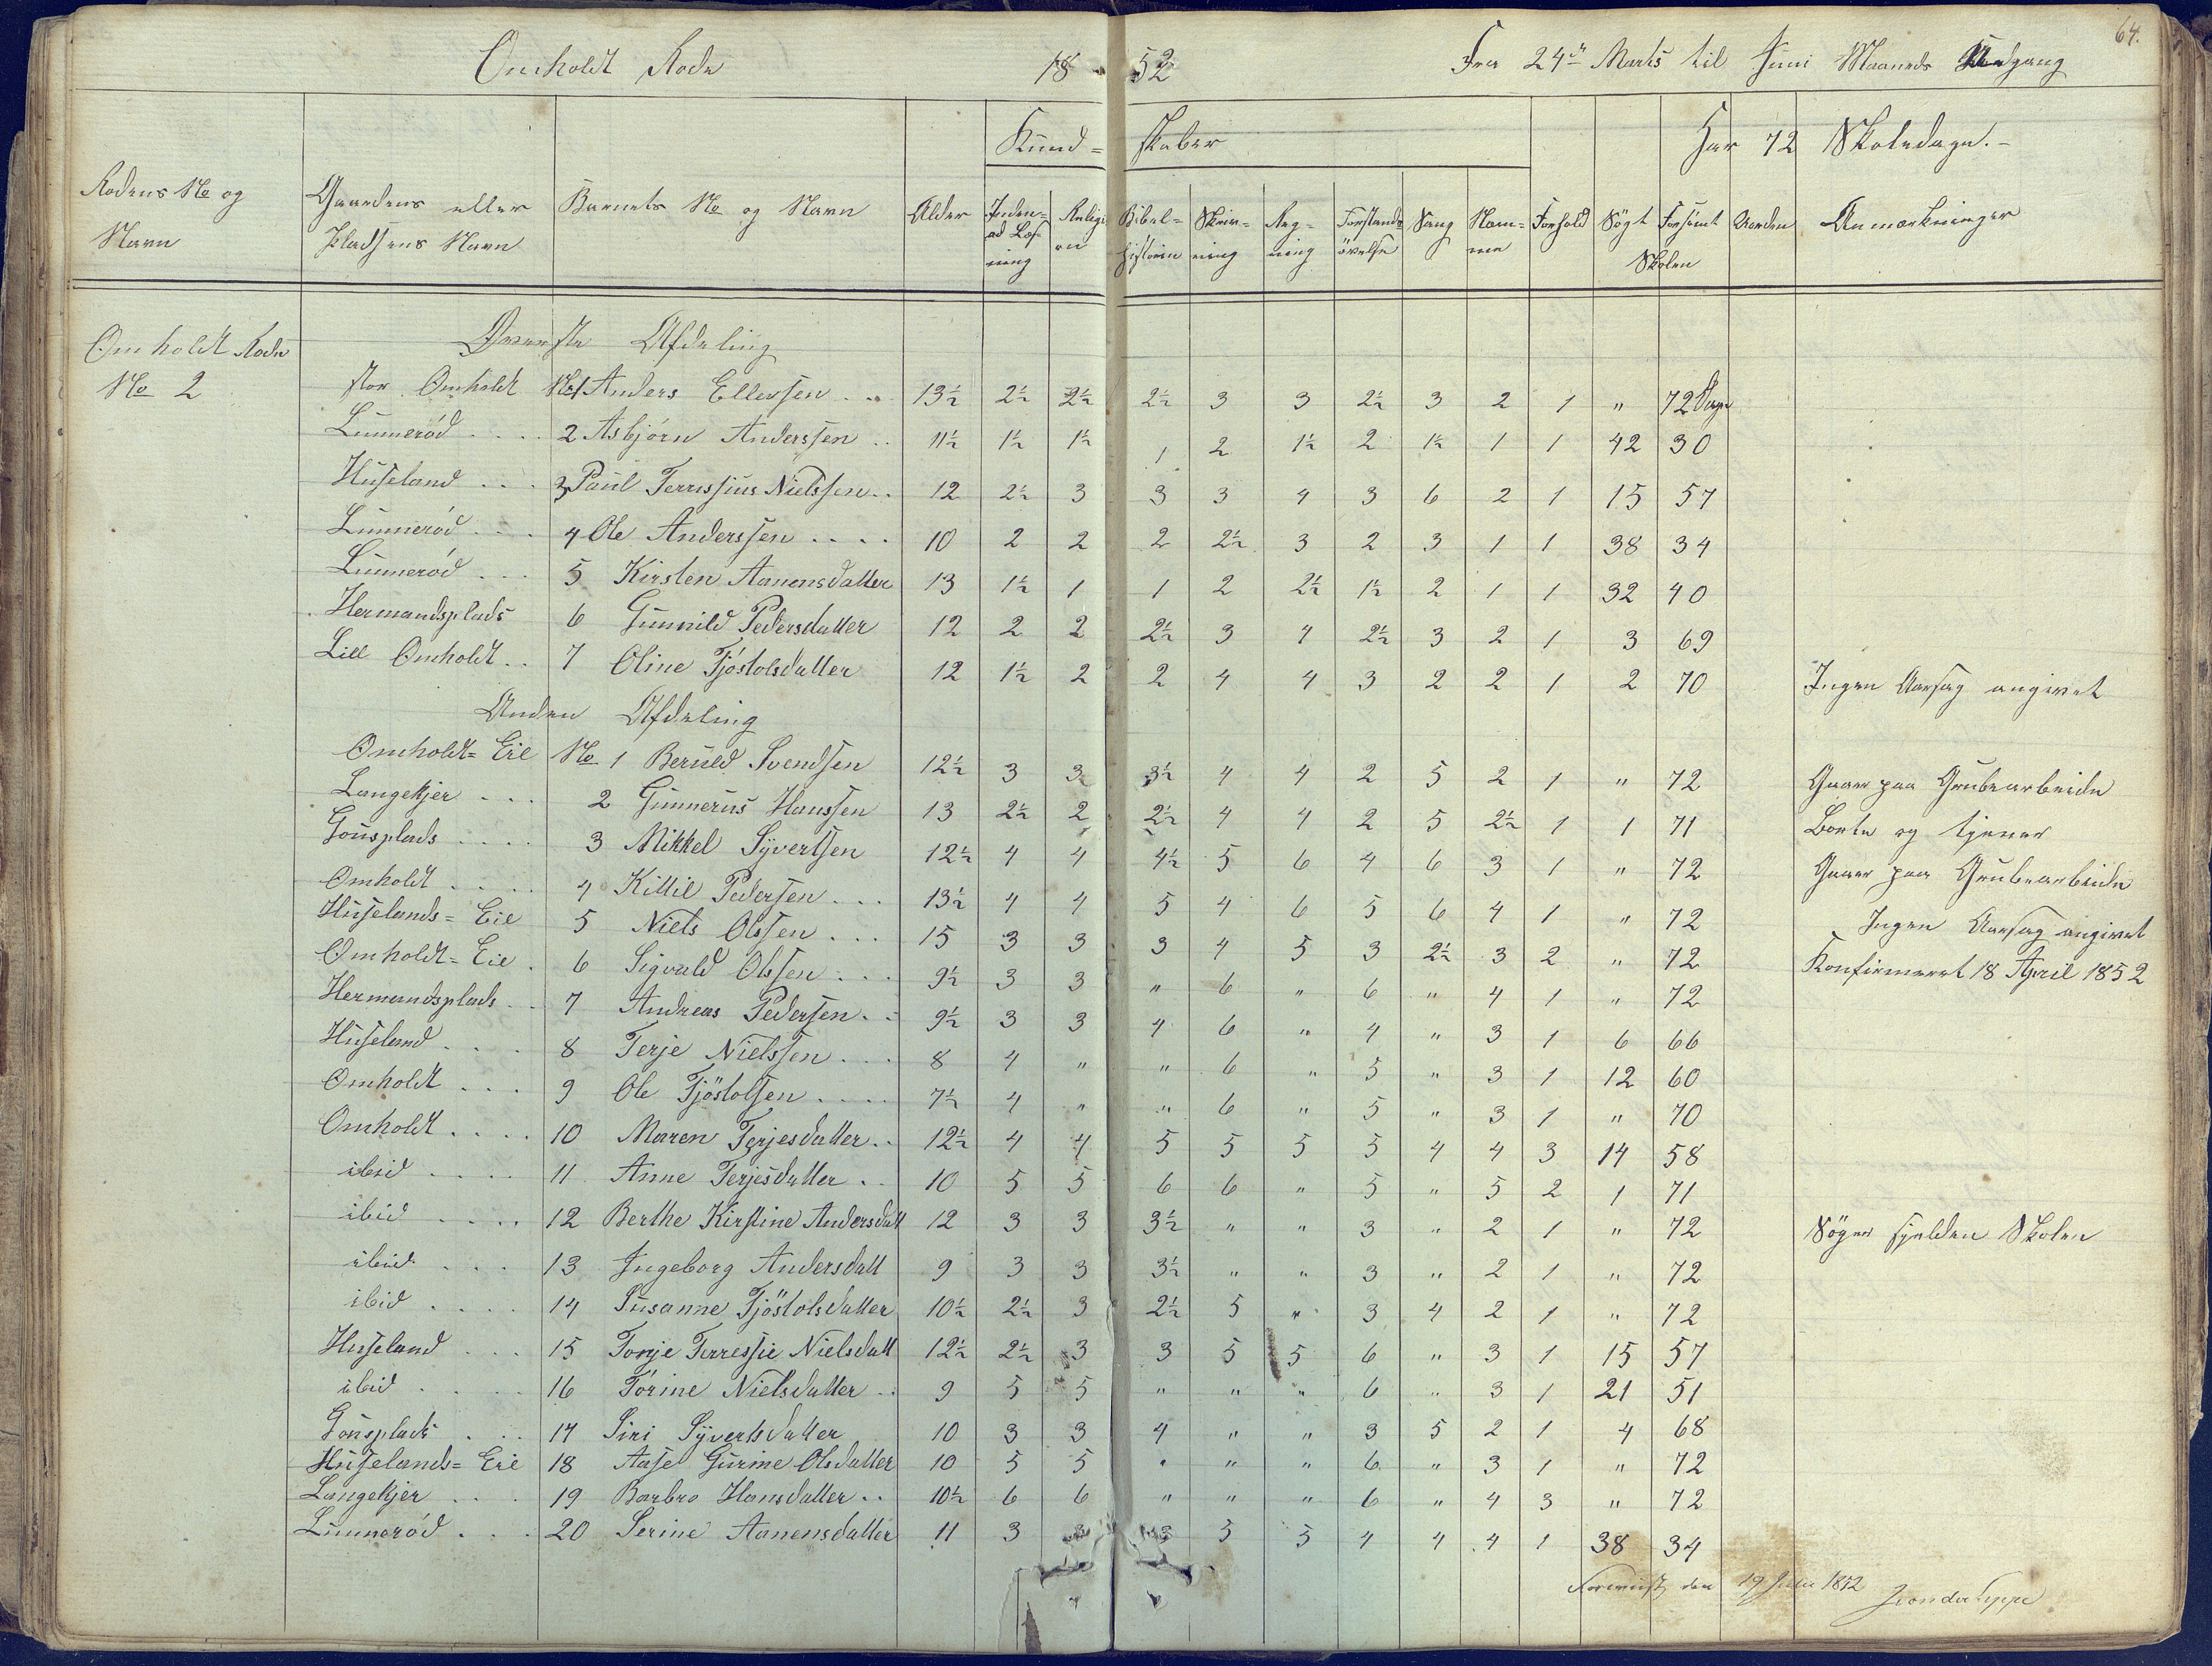 64.
Omholdt Rode 1852 Fra 24de Marts til Juni Maaneds Udgang
Kundskaber Har 72 Skoledage.
Rodens No og Navn | Gaardens eller Pladsens Navn | Barnets No og Navn | Alder | Indenad Læsning | Religion | Bibelhistorie | Skrivning | Regning | Forstandsøvelse | Sang | Nemme | Forhold | Søgt | Forsømt Skolen | Orden | Anmærkninger
Omholdt Rode
No 2
Øverste Afdeling
Stor Omholdt No 1 Anders Ellevsen .. 13½ 2½ 2½ 2½ 3 3 2½ 3 2 1 " 72 Dage
Lunnerød .... 2 Asbjørn Anderssen .. 11½ 1½ 1½ 1 2 1½ 2 1½ 1 1 42 30
Huseland ... 3 Paul Terressius Nielssen .. 12 2½ 3 3 3 4 3 6 2 1 15 57
Lunnerød ... 4 Ole Anderssen .... 10 2 2 2 2½ 3 2 3 1 1 38 34
Lunnerød ... 5 Kirsten Aanensdatter 13 1½ 1 1 2 2½ 1½ 2 1 1 32 40
Hermandsplads 6 Gunnild Pedersdatter 12 2 2 2½ 3 4 2½ 3 2 1 3 69
Lill Omholdt .. 7 Oline Tjöstolsdatter 12 1½ 2 2 4 4 3 2 2 1 2 70 Ingen Aarsag angivet
Anden Afdeling
Omholdt=Eie No 1 Beruld Svendsen 12½ 3 3 3½ 4 4 2 5 2 1 " 72 Gaaer paa Grubearbeide
Langekjer ... 2 Gunnerus Hanssen 13 2½ 2 2½ 4 4 2 5 2½ 1 1 71 Borte og tjener
Gousplads .... 3 Mikkel Syvertsen 12½ 4 4 4½ 5 6 4 6 3 1 " 72 Gaaer paa Grubearbeide
Omholdt .... 4 Kittil Pedersen ... 13½ 4 4 5 4 6 5 6 4 1 " 72 Ingen Aarsag angivet
Huselands=Eie 5 Niels Olssen ... 15 3 3 3 4 5 3 2½ 3 2 " 72 Konfirmeret 18 April 1852
Omholdt=Eie . 6 Sigvald Olssen ... 9½ 3 3 " 6 " 6 " 4 1 " 72
Hermandsplads .. 7 Andreas Pedersen .. 9½ 3 3 4 6 " 4 " 3 1 6 66
Huseland .... 8 Terje Nielssen ... 8 4 " " 6 " 5 " 3 1 12 60
Omholdt ... 9 Ole Tjöstolsen .... 7½ 4 " " 6 " 5 " 3 1 " 70
Omholdt .... 10 Maren Terjesdatter .. 12½ 4 4 5 5 5 5 4 4 3 14 58
ibid .... 11 Anne Terjesdatter .. 10 5 5 6 6 " 5 " 5 2 1 71
ibid .... 12 Berthe Kirstine Andersdatt 12 3 3 3½ " " 3 " 2 1 " 72 Søger sjelden Skolen
ibid ... 13 Ingeborg Andersdatt 9 3 3 3½ " " 3 " 2 1 " 72
ibid .... 14 Susanne Tjöstolsdatter 10½ 2½ 3 2½ 5 " 3 4 2 1 " 72
Huseland ... 15 Tonje Terressie Nielsdatt 12½ 2½ 3 3 5 5 6 " 3 1 15 57
ibid .... 16 Torine Nielsdatter .. 9 5 5 " " " 6 " 3 1 21 51
Gousplads ... 17 Siri Syvertsdatter 10 3 3 4 " " 3 5 2 1 4 68
Huselands=Eie 18 Aase Gurine Olsdatter 10 5 5 " " " 6 " 3 1 " 72
Langekjer ... 19 Barbro Hansdatter .. 10½ 6 6 " " " 6 " 4 3 " 72
Lunnerød ... 20 Serine Aanensdatter 11 3 3 3 5 5 4 4 4 1 38 34
Foreviist den 19 Juli 1852